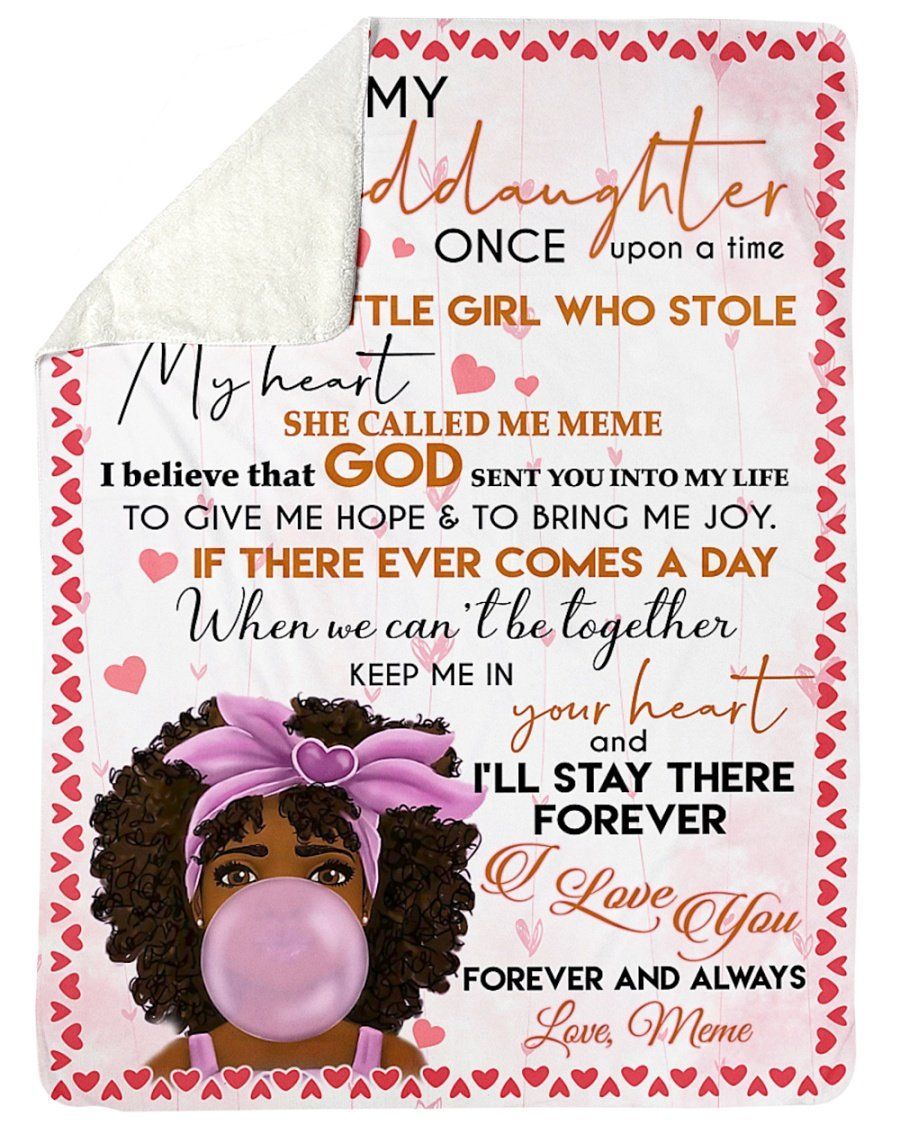 MY
ddaughter
ONCE upon a time
TTLE GIRL WHO STOLE
My heart
SHE CALLED ME MEME
I believe that GOD SENT YOU INTO MY LIFE
TO GIVE ME HOPE & TO BRING ME JOY.
IF THERE EVER COMES A DAY
When we can't be together
KEEP ME IN
your heart
and
I'LL STAY THERE
FOREVER
I Love You
FOREVER AND ALWAYS
Love, Meme